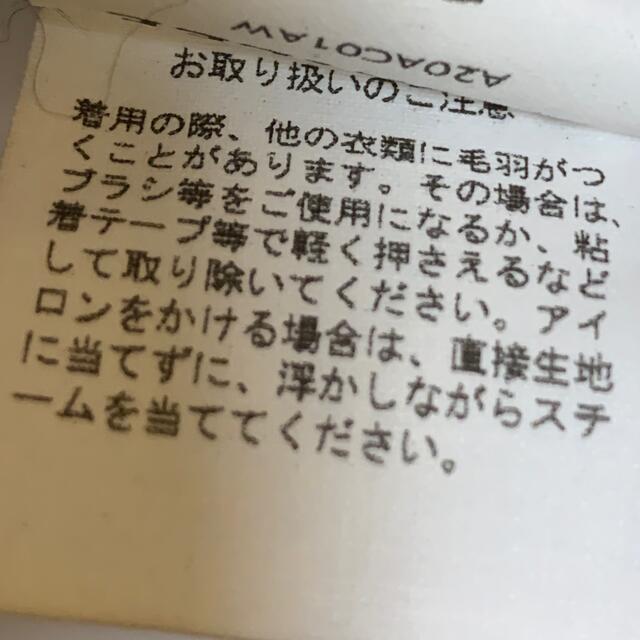 A20AC01AW
お取り扱いのご注意
着用の際、他の衣類に毛羽がつ
くことがあります。その場合は、
ブラシ等をご使用になるか、粘
着テープ等で軽く押さえるなど
して取り除いてください。アイ
ロンをかける場合は、直接生地
に当てずに、浮かしながらスチ
ームを当ててください。